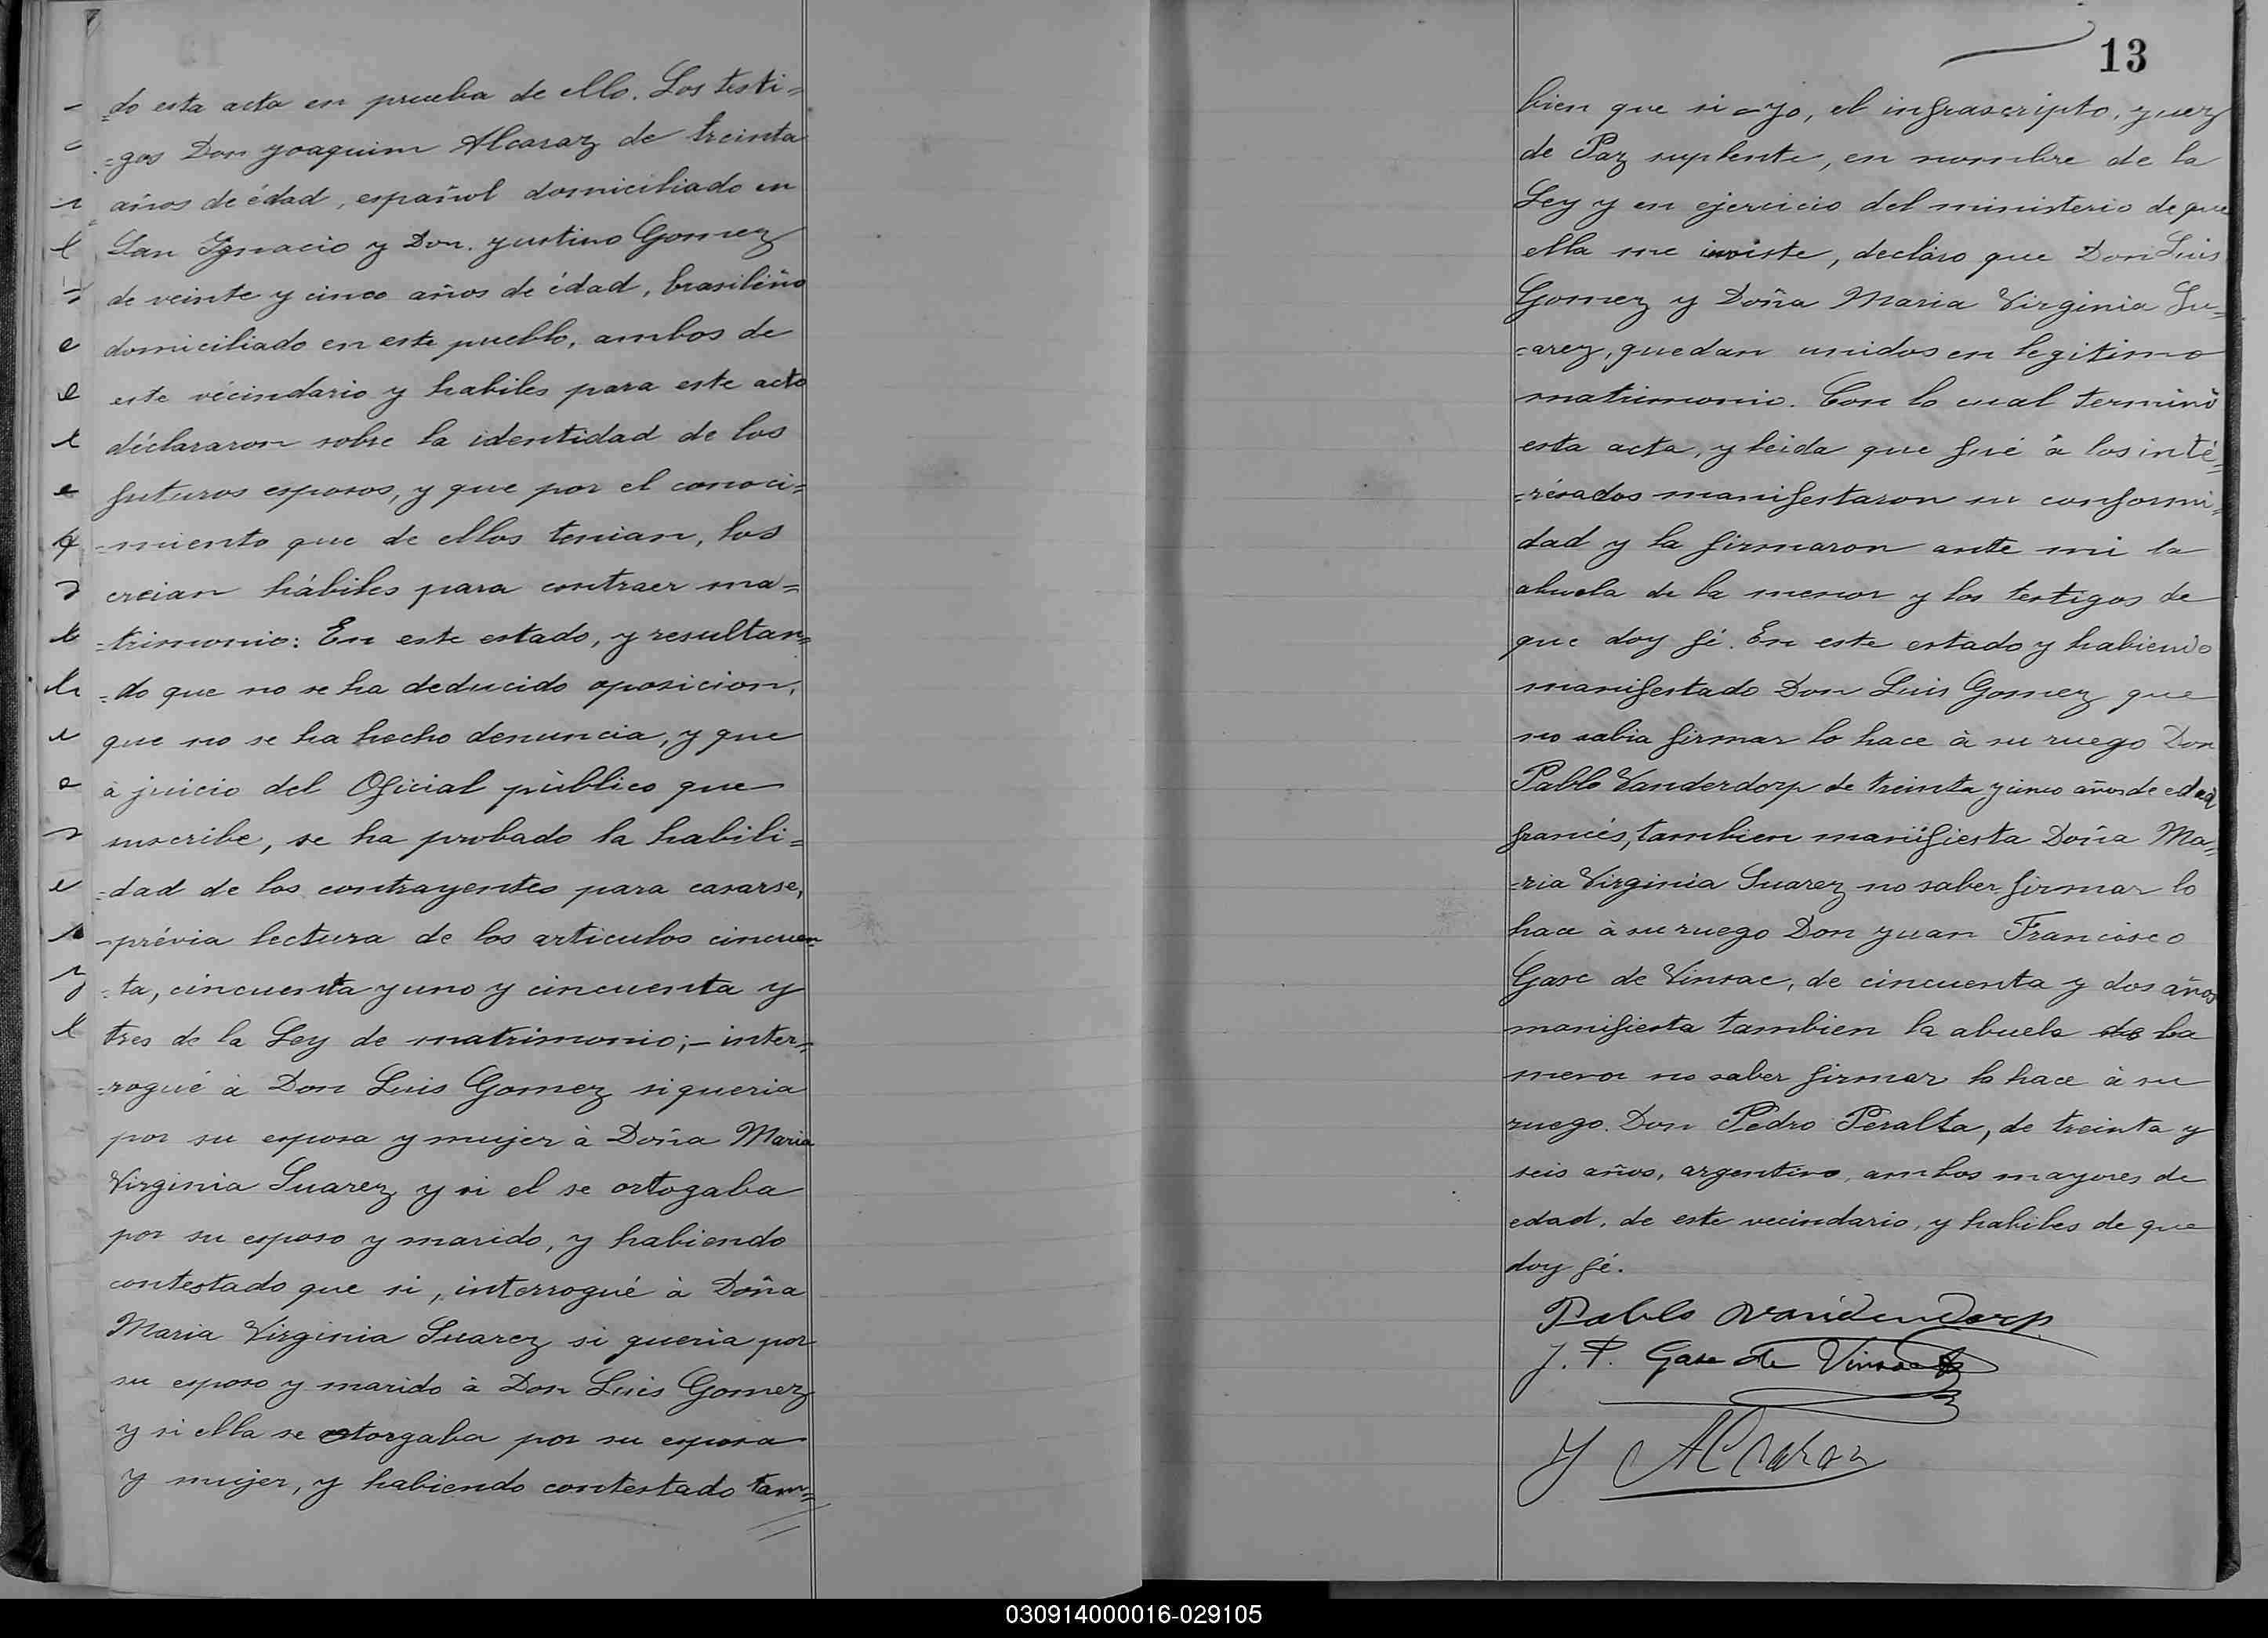 =do esta acta en prueba de ello. Los testi=
=gos Don Joaquim Alcaraz de treinta
años de édad, español domiciliado en
San Ignacio y Don. Justino Gomez
de veinte y cinco años de édad, brasiliño
domiciliado en este pueblo, ambos de
este vécindario y habiles para este acto
déclararon sobre la identidad de los
futuros esposos, y que por el conoci=
=miento que de ellos tenian, los
creian hábiles para contraer ma=
=trimonio: En este estado, y resultan=
=do que no se ha deducido oposicion,
que no se ha hecho denuncia, y que
à juicio del Oficial público que
suscribe, se ha probado la habili=
=dad de los contrayentes para casarse,
=prévia lectura de los articulos cincuen
=ta, cincuenta y uno y cincuenta y
tres de la Ley de matrimonio;- inter=
=rogué à Don Luis Gomez si queria
por su esposa y mujer à Doña Maria
Virginia Suarez y si el se ortogaba
por su esposo y marido, y habiendo
contestado que si, interrogué à Doña
Maria Virginia Suarez si queria por
su esposo y marido à Don Luis Gomez
y si ella se otorgaba por su esposa
y mujer, y habiendo contestado tam=
13
bien que si =yo, el infrascripto, Juez
de Paz suplente, en nombre de la
Ley y en ejercicio del ministerio de que
ella me inviste, declaro que Don Luis
Gomez y Doña Maria Virginia Su=
=arez, quedan unidos en legitimo
matrimonio. Con lo cual terminó
esta acta, y leida que fué à los inté=
=résados manifestaron su conformi=
dad y la firmaron ante mi la
abuela de la menor y los testigos de
que doy fé. En este estado y habiendo
manifestado Don Luis Gomez que
no sabia firmar lo hace à su ruego Don
Pablo Vanderdorp de treinta y cinco años de edad
francés, tambien manifiesta Doña Ma=
=ria Virginia Suarez no saber firmar lo
hace à su ruego Don Juan Francisco
Gasc de Vinsac, de cincuenta y dos años
manifiesta tambien la abuela de la
menor no saber firmar lo hace à su
ruego. Don Pedro Peralta, de treinta y
seis años, argentino, ambos mayores de
edad, de este vecindario, y habiles de que
doy fé.
Pablo Vandendorp
J. F. Gasc de Vinsac
J Alcaraz
030914000016-029105